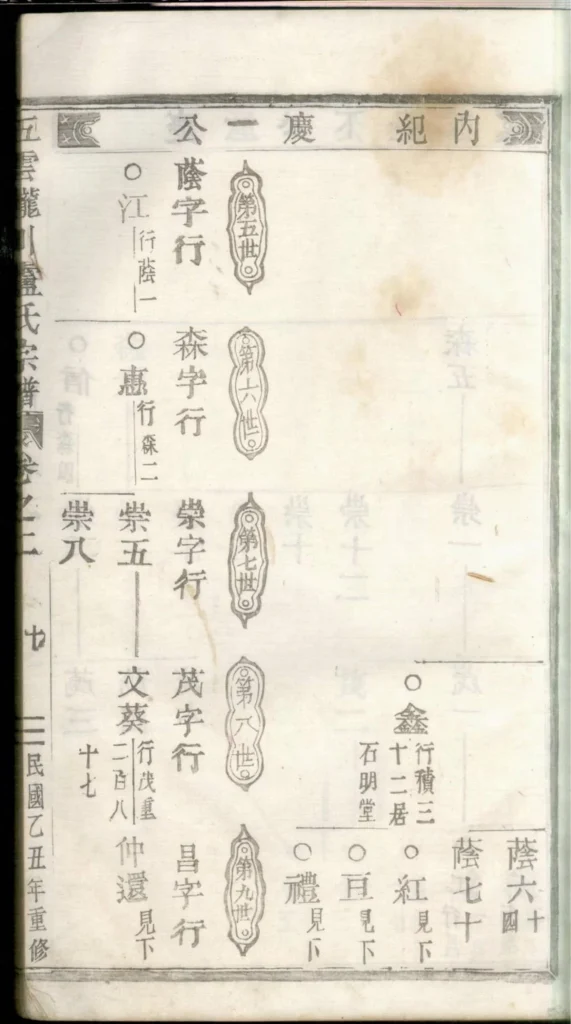 內紀 慶一公
蔭六十四
蔭七十
○紅 見下
○亘 見下
○禮 見下
○鑫 行積三十二居石明堂
第五世
第六世
第七世
第八世
第九世
蔭字行
森字行
崇字行
茂字行
昌字行
○江 行蔭一
○惠 行森二
崇五
文葵 行茂重二百八十七
仲還 見下
崇八
五雲瀧川盧氏宗譜 卷之二
十
民國乙丑年重修